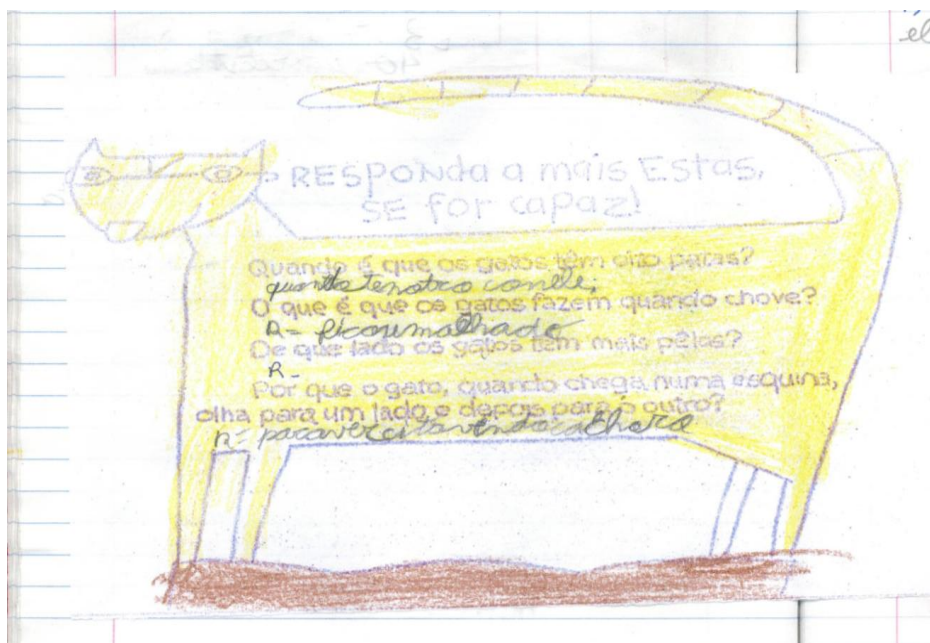 RESPONDa a mais Estas,
SE for capaz!
Quando é que os gatos têm oito patas?
quando tenotro comele.
O que é que os gatos fazem quando chove?
R- ficasemolhado
De que lado os gatos têm mais pêlos?
R-
Por que o gato, quando chega numa esquina,
olha para um lado e depois para o outro?
R= paraverci
el